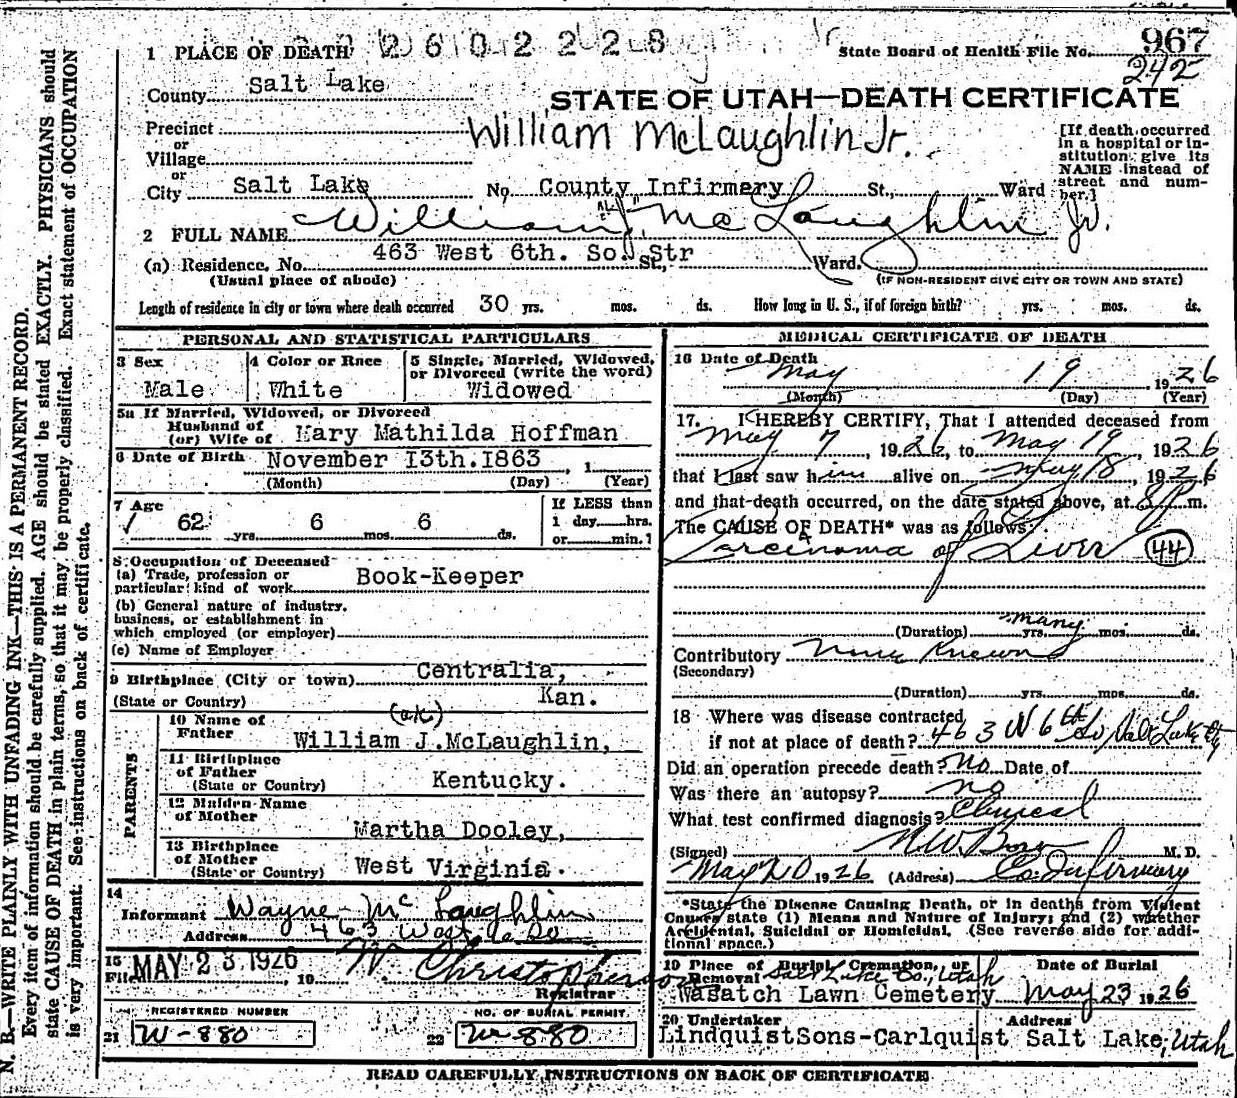 1 PLACE OF DEATH 2602228 Jr State Board of Health File No. 967
242
County Salt Lake
STATE OF UTAH—DEATH CERTIFICATE
Precinct
or
Village
or
City Salt Lake No. County Infirmery St., Ward
William McLaughlin Jr.
[If death occurred in a hospital or institution give its NAME instead of street and number.]
2 FULL NAME William McLaughlin Jr.
(a) Residence. No. 463 West 6th. So. Str St., Ward.
(Usual place of abode) (IF NON-RESIDENT GIVE CITY OR TOWN AND STATE)
Length of residence in city or town where death occurred 30 yrs. mos. ds. How long in U. S., if of foreign birth? yrs. mos. ds.
PERSONAL AND STATISTICAL PARTICULARS
3 Sex Male
4 Color or Race White
5 Single, Married, Widowed, or Divorced (write the word) Widowed
5a If Married, Widowed, or Divorced
Husband of
(or) Wife of Mary Mathilda Hoffman
6 Date of Birth November I3th.I863 , 1
(Month) (Day) (Year)
7 Age 62 yrs. 6 mos. 6 ds.
If LESS than
1 day hrs.
or min.?
8 Occupation of Deceased
(a) Trade, profession or
particular kind of work Book-Keeper
(b) General nature of industry,
business, or establishment in
which employed (or employer)
(c) Name of Employer
9 Birthplace (City or town) Centralia,
(State or Country) Kan.
PARENTS
10 Name of
Father (ok) William J.McLaughlin,
11 Birthplace
of Father
(State or Country) Kentucky.
12 Maiden Name
of Mother Martha Dooley,
13 Birthplace
of Mother
(State or Country) West Virginia.
14
Informant Wayne McLaughlin
Address 463 West 6 So
15
Filed MAY 23 1926, 19 W Christopherson
Registrar
REGISTERED NUMBER
21 W-880
NO. OF BURIAL PERMIT
22 W-880
MEDICAL CERTIFICATE OF DEATH
16 Date of Death
May 19, 1926
(Month) (Day) (Year)
17. I HEREBY CERTIFY, That I attended deceased from
May 7, 1926, to May 19, 1926
that I last saw him alive on May 18, 1926
and that death occurred, on the date stated above, at 8 P m.
The CAUSE OF DEATH* was as follows:
Carcinoma of Liver 44
(Duration) many yrs. mos. ds.
Contributory None Known
(Secondary)
(Duration) yrs. mos. ds.
18 Where was disease contracted
if not at place of death? 463 W 6th So Salt Lake City
Did an operation precede death? No Date of
Was there an autopsy? no
What test confirmed diagnosis? Clinical
(Signed) M. D.
May 20 1926 (Address) Co. Infirmary
*State the Disease Causing Death, or in deaths from Violent
Causes state (1) Means and Nature of Injury; and (2) whether
Accidental, Suicidal or Homicidal. (See reverse side for addi-
tional space.)
19 Place of Burial, Cremation, or
Removal Salt Lake Co., Utah
Wasatch Lawn Cemetery
Date of Burial
May 23 1926
20 Undertaker Address
LindquistSons-Carlquist Salt Lake, Utah
READ CAREFULLY INSTRUCTIONS ON BACK OF CERTIFICATE
N. B.—WRITE PLAINLY WITH UNFADING INK—THIS IS A PERMANENT RECORD.
Every item of information should be carefully supplied. AGE should be stated EXACTLY. PHYSICIANS should
state CAUSE OF DEATH in plain terms, so that it may be properly classified. Exact statement of OCCUPATION
is very important. See instructions on back of certificate.